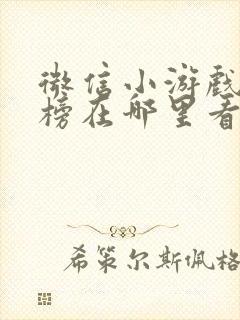 微信小游戏
榜在哪里看
希策尔斯佩格